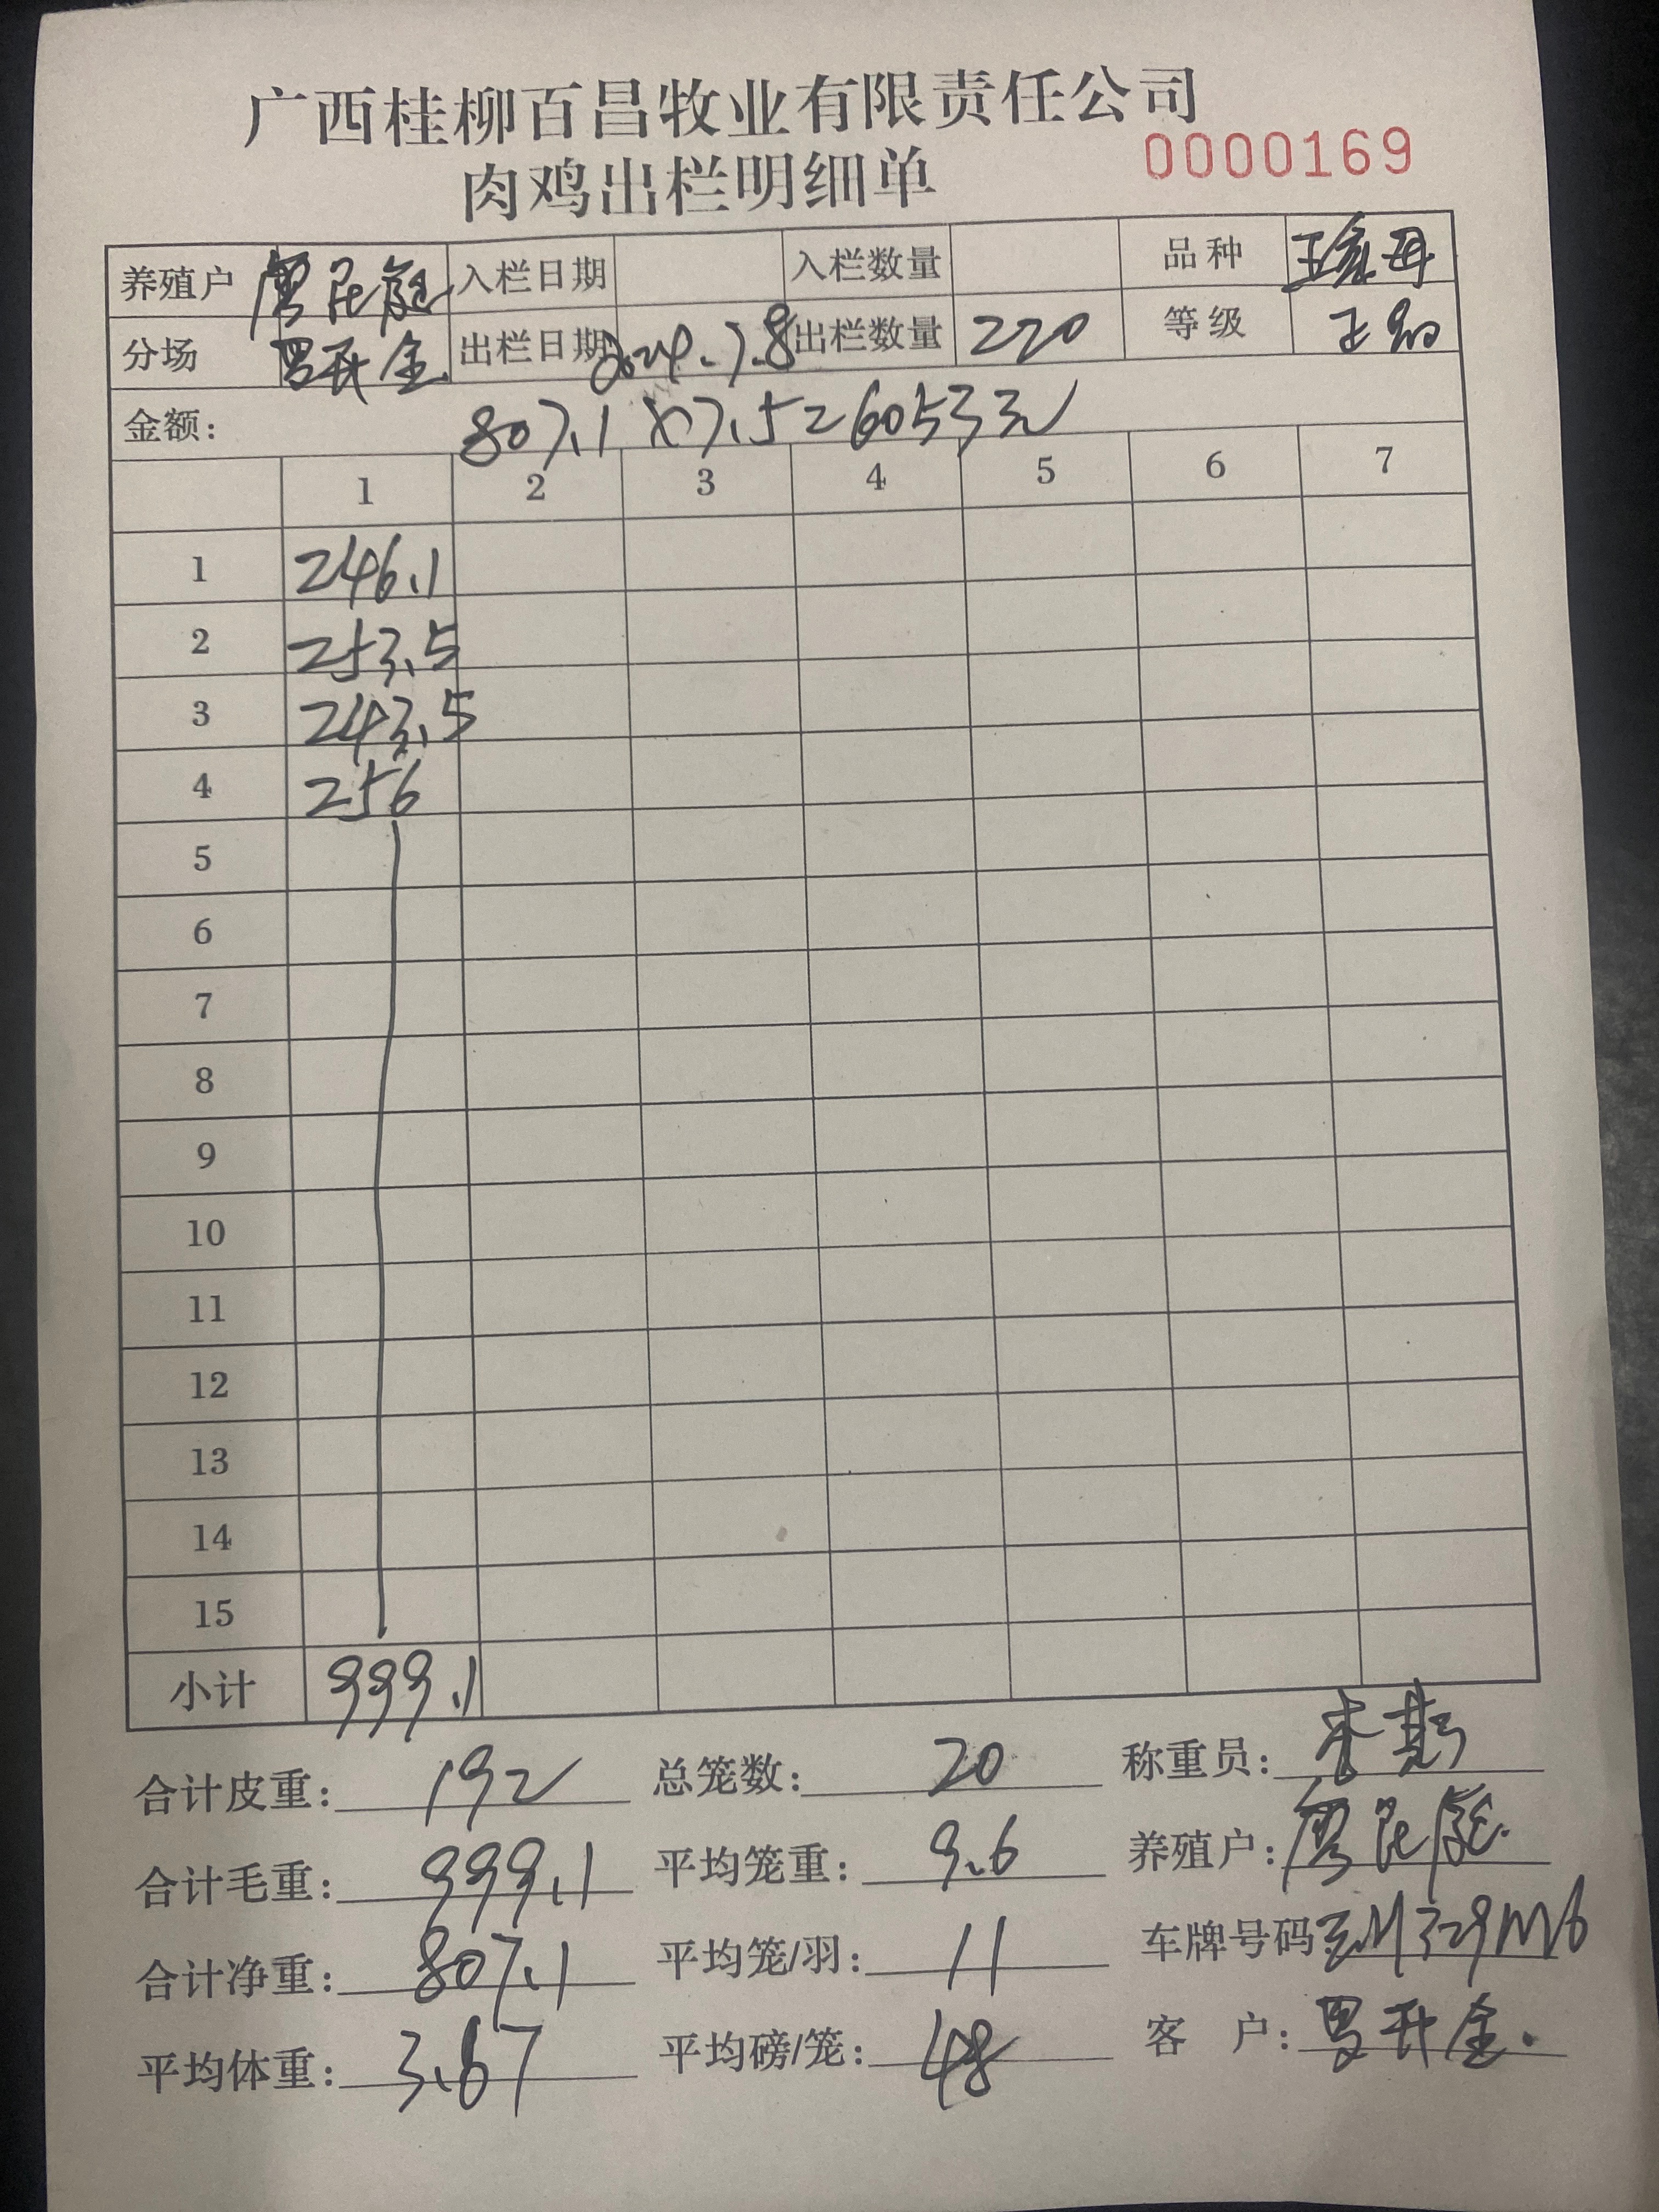 广西桂柳百昌牧业有限责任公司
0000169
肉鸡出栏明细单
养殖户 入栏日期 入栏数量 品种
分场 罗升金 出栏日期 2024.7.8 出栏数量 220 等级 正
金额: 807.1×7.5=6053元
1 2 3 4 5 6 7
1 246.1
2 253.5
3 243.5
4 256
5
6
7
8
9
10
11
12
13
14
15
小计 999.1
合计皮重: 192 总笼数: 20 称重员:
合计毛重: 999.1 平均笼重: 9.6 养殖户:
合计净重: 807.1 平均笼/羽: 11 车牌号码 329M6
平均体重: 3.67 平均磅/笼: 48 客户: 罗升金.